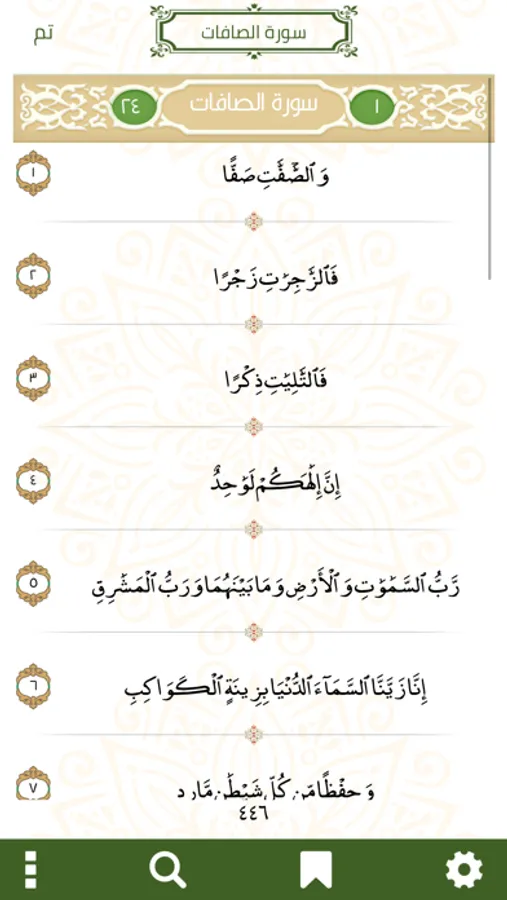 سورة الصافات
تم
١ سورة الصافات ٢٤
وَٱلصَّٰٓفَّٰتِ صَفًّا ١
فَٱلزَّٰجِرَٰتِ زَجْرًا ٢
فَٱلتَّٰلِيَٰتِ ذِكْرًا ٣
إِنَّ إِلَٰهَكُمْ لَوَٰحِدٌ ٤
رَّبُّ ٱلسَّمَٰوَٰتِ وَٱلْأَرْضِ وَمَا بَيْنَهُمَا وَرَبُّ ٱلْمَشَٰرِقِ ٥
إِنَّا زَيَّنَّا ٱلسَّمَآءَ ٱلدُّنْيَا بِزِينَةٍ ٱلْكَوَاكِبِ ٦
وَحِفْظًا مِّن كُلِّ شَيْطَٰنٍ مَّارِدٍ ٧
٤٤٦